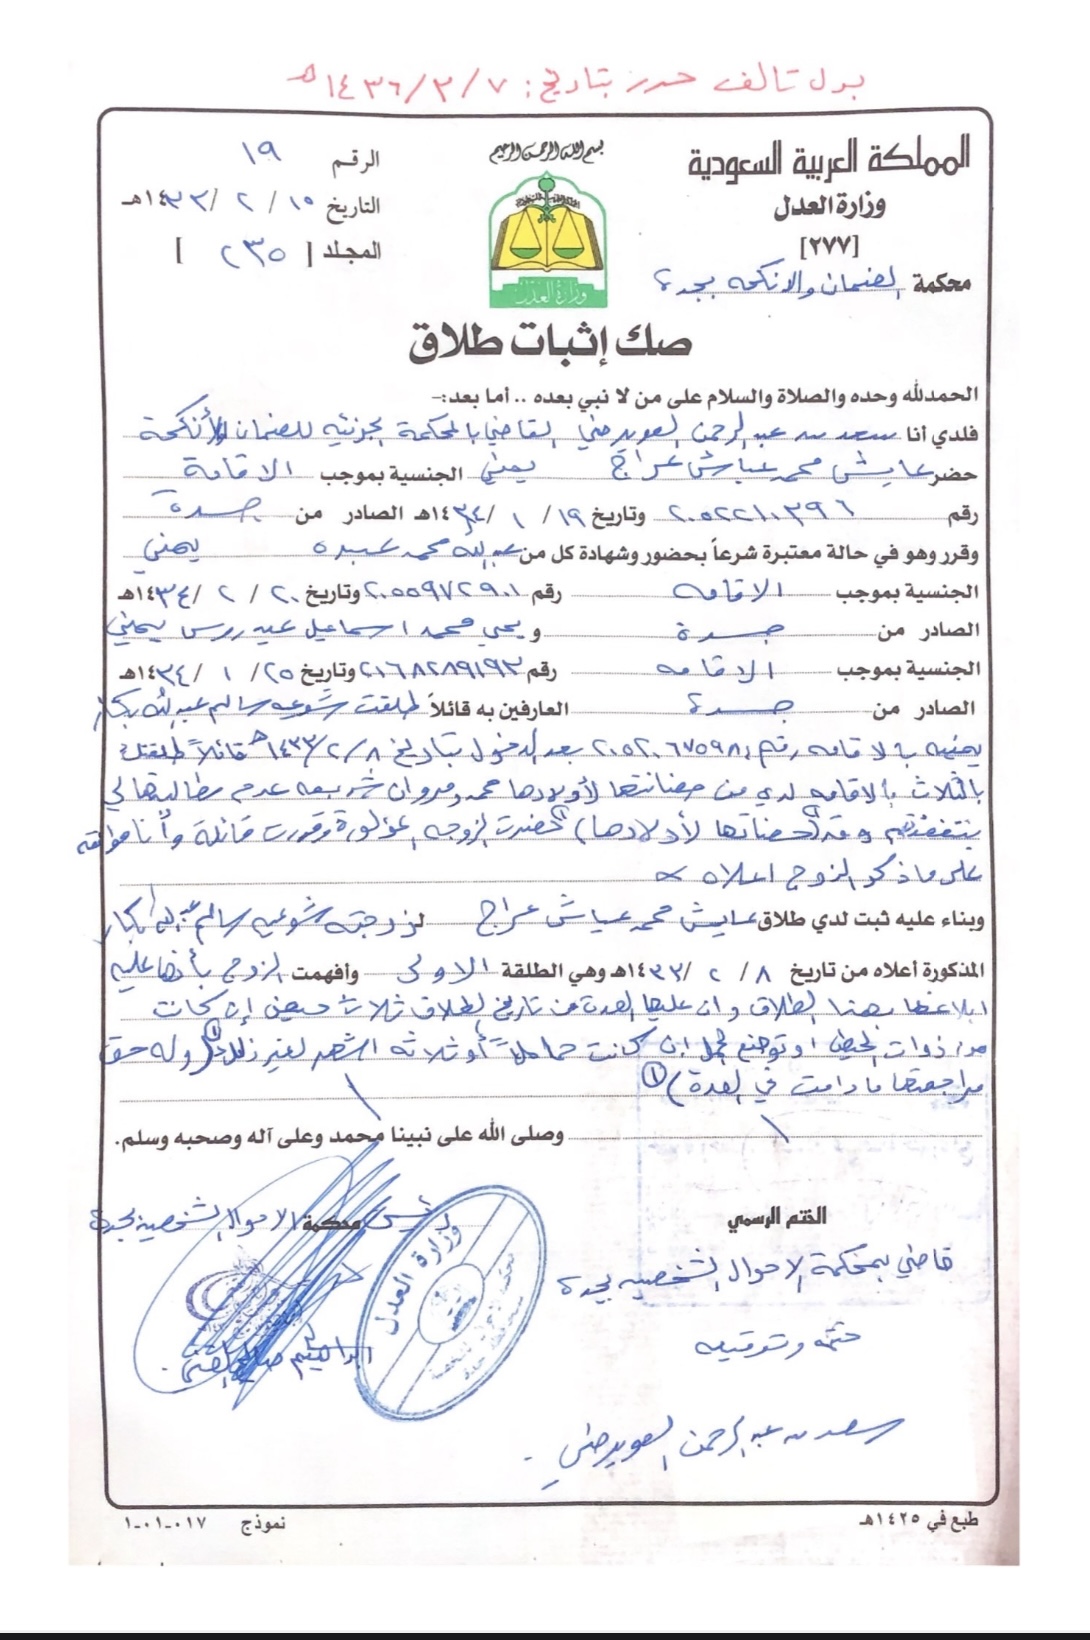 بدل تالف حرر بتاريخ: ١٤٣٦/٣/٧هـ
المملكة العربية السعودية
وزارة العدل
[٢٧٧]
محكمة الضمان والانكحه بجدة
بسم الله الرحمن الرحيم
وزارة العدل
الرقم ١٩
التاريخ ١٥ / ٢ / ١٤٣٣هـ
المجلد [ ٢٣٥ ]
صك إثبات طلاق
الحمدلله وحده والصلاة والسلام على من لا نبي بعده .. أما بعد:-
فلدي أنا سعد بن عبدالرحمن العويرضي القاضي بالمحكمة الجزئيه للضمان والأنكحة
حضر عايش محمد عياش عراج يمني الجنسية بموجب الاقامة
رقم ٢٠٥٢٢١٠٣٩٦ وتاريخ ١٩ / ١ / ١٤٣٤هـ الصادر من جدة
وقرر وهو في حالة معتبرة شرعاً بحضور وشهادة كل من عبدالله محمد عبده يمني
الجنسية بموجب الاقامه رقم ٢٠٥٥٩٧٢٩٠١ وتاريخ ٢٠ / ٢ / ١٤٣٤هـ
الصادر من جدة و يحي محمد اسماعيل عيدروس يمني
الجنسية بموجب الاقامه رقم ٢١٦٨٢٨٩١٩٣ وتاريخ ٢٥ / ١ / ١٤٣٤هـ
الصادر من جدة العارفين به قائلاً طلقت شوعيه سالم عبدالله بكار
يمنيه بالاقامه رقم ٢٠٥٢٠٦٧٥٩٨ بعد الدخول بتاريخ ١٤٣٣/٢/٨هـ قائلاً طلقتك
بالثلاث بالاقامه لدي من حضانتها لأولادها محمد ومروان شريعه عدم مطالبتها لي
بنفقتهم وقد (حضانتها لأولادها) حضرت الزوجه المذكورة وقررت قائلة وأنا موافقه
على ماذكر الزوج اعلاه
وبناء عليه ثبت لدي طلاق عايش محمد عياش عراج لزوجته شوعيه سالم عبدالله بكار
المذكورة أعلاه من تاريخ ٨ / ٢ / ١٤٣٣هـ وهي الطلقة الاولى وأفهمت الزوج بأن عليه
ابلاغها بهذا الطلاق وان عليها العدة من تاريخ الطلاق ثلاث حيض إن كانت
من ذوات الحيض او توضع الحمل إن كانت حاملاً أو ثلاثه اشهر لغير ذلك (وله حق
مراجعتها مادامت في العدة) ①
وصلى الله على نبينا محمد وعلى آله وصحبه وسلم.
الختم الرسمي
رئيس محكمة الاحوال الشخصيه بجدة
قاضي بمحكمة الاحوال الشخصيه بجدة
وزارة العدل
ختمه وتوقيعه
سعد بن عبدالرحمن العويرضي
طبع في ١٤٢٥هـ
نموذج ٠١٧-٠١-١